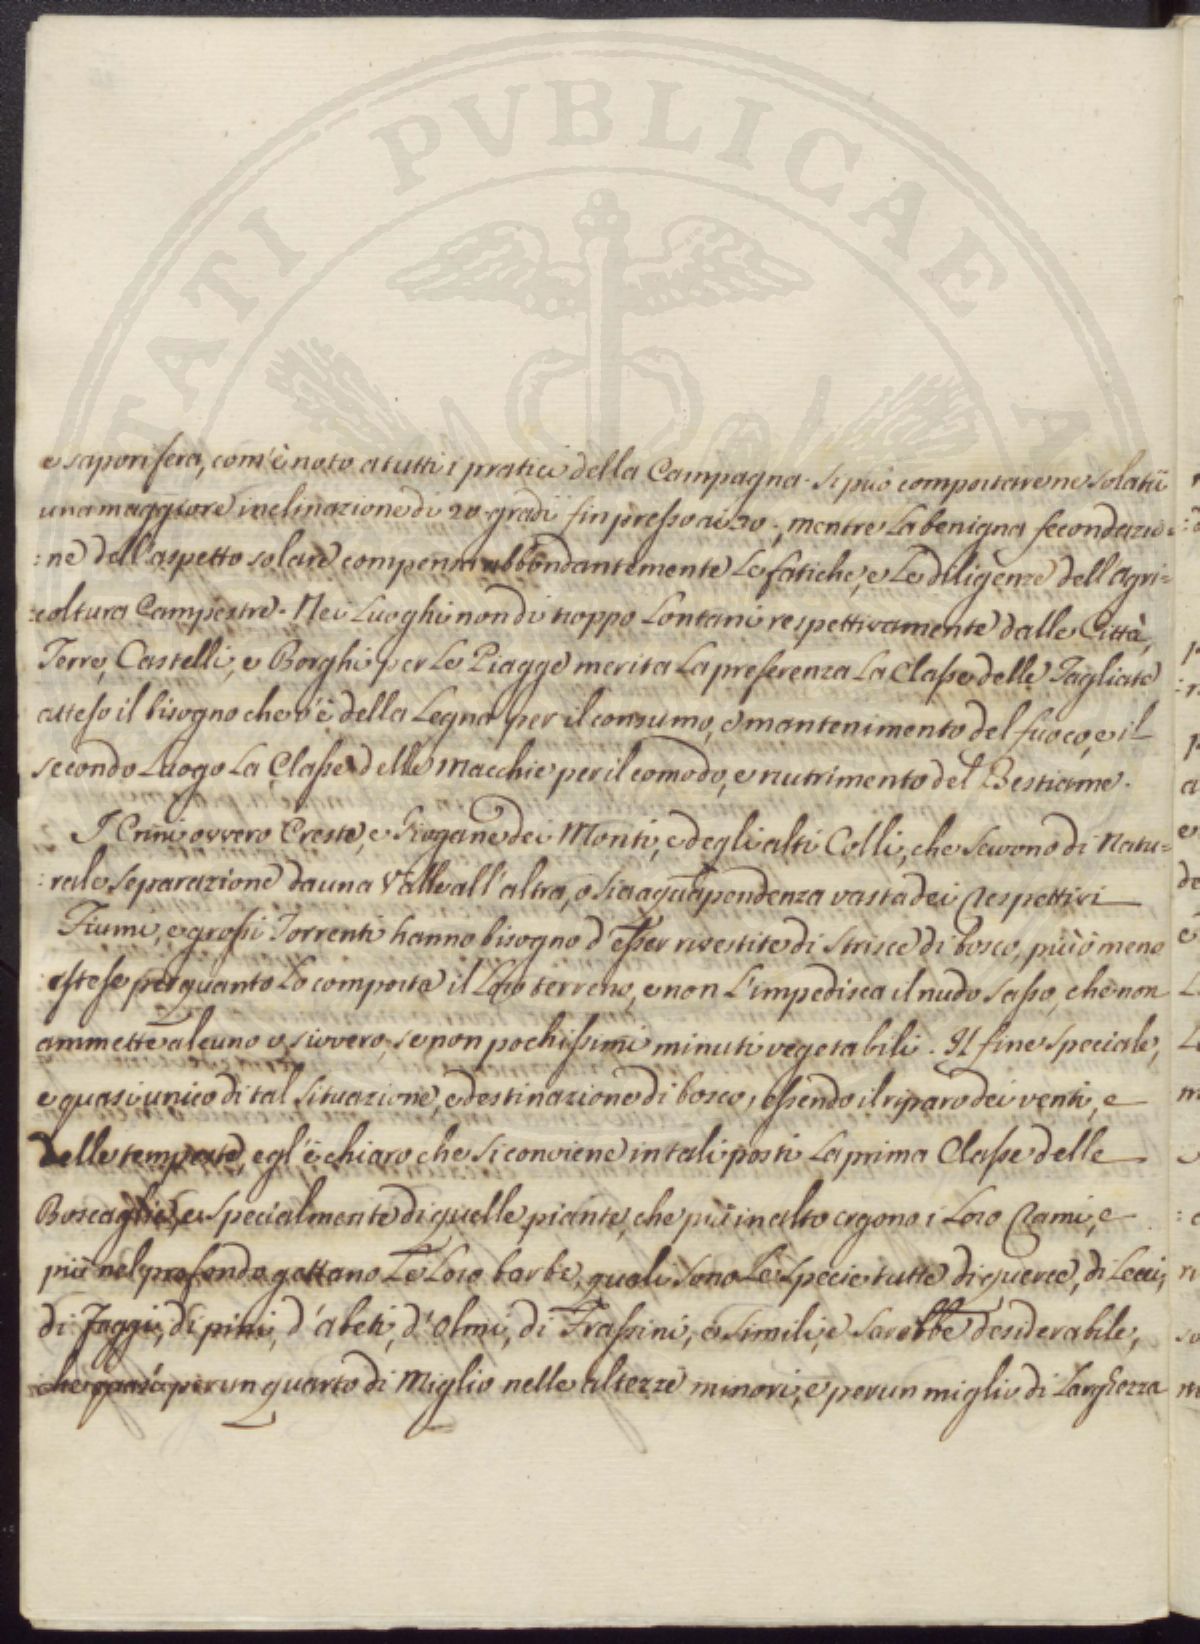 TATI PVBLICAE A
e saporifera, com'è noto a tutti i pratici della Campagna. Si può comportare ne solatii
una maggiore inclinazione di 20. gradi fin presso ai 30., mentre la benigna fecondazio=
:ne dell'aspetto solare compensa abbondantemente le fatiche, e le diligenze dell'agri=
:coltura Campestre. Nei luoghi non di troppo lontani respettivamente dalle Città,
Terre, Castelli, e Borghi per le Piagge merita la preferenza la Classe delle Tagliate
atteso il bisogno che v'è della Legna per il consumo, e mantenimento del fuoco, e il
secondo luogo la Classe delle Macchie per il comodo, e nutrimento del Bestiame.
I Crini ovvero Creste, e Giogane dei Monti, e degli alti Colli, che servono di Natu=
:rale separazione da una Valle all'altra, o sia acquapendenza vasta dei respettivi
Fiumi, e grossi Torrenti hanno bisogno d'esser rivestite di strisce di bosco, più ò meno
estese per quanto lo comporta il loro terreno, e non l'impedisca il nudo sasso, che non
ammette alcuno o sivvero, se non pochissimi minuti vegetabili. Il fine speciale,
e quasi unico di tal situazione, e destinazione di bosco, essendo il riparo dei venti, e
delle tempeste, egl'è chiaro che si conviene in tali posti la prima Classe delle
Boscaglie, e specialmente di quelle piante, che più in alto ergono i loro rami, e
più nel profondo gettano le loro barbe, quali sono le specie tutte di querce, di Lecci,
di Faggi, di pini, d'abeti, d'Olmi, di Frassini, e simili, e sarebbe desiderabile,
che per un quarto di Miglio nelle altezze minori, e per un miglio di larghezza